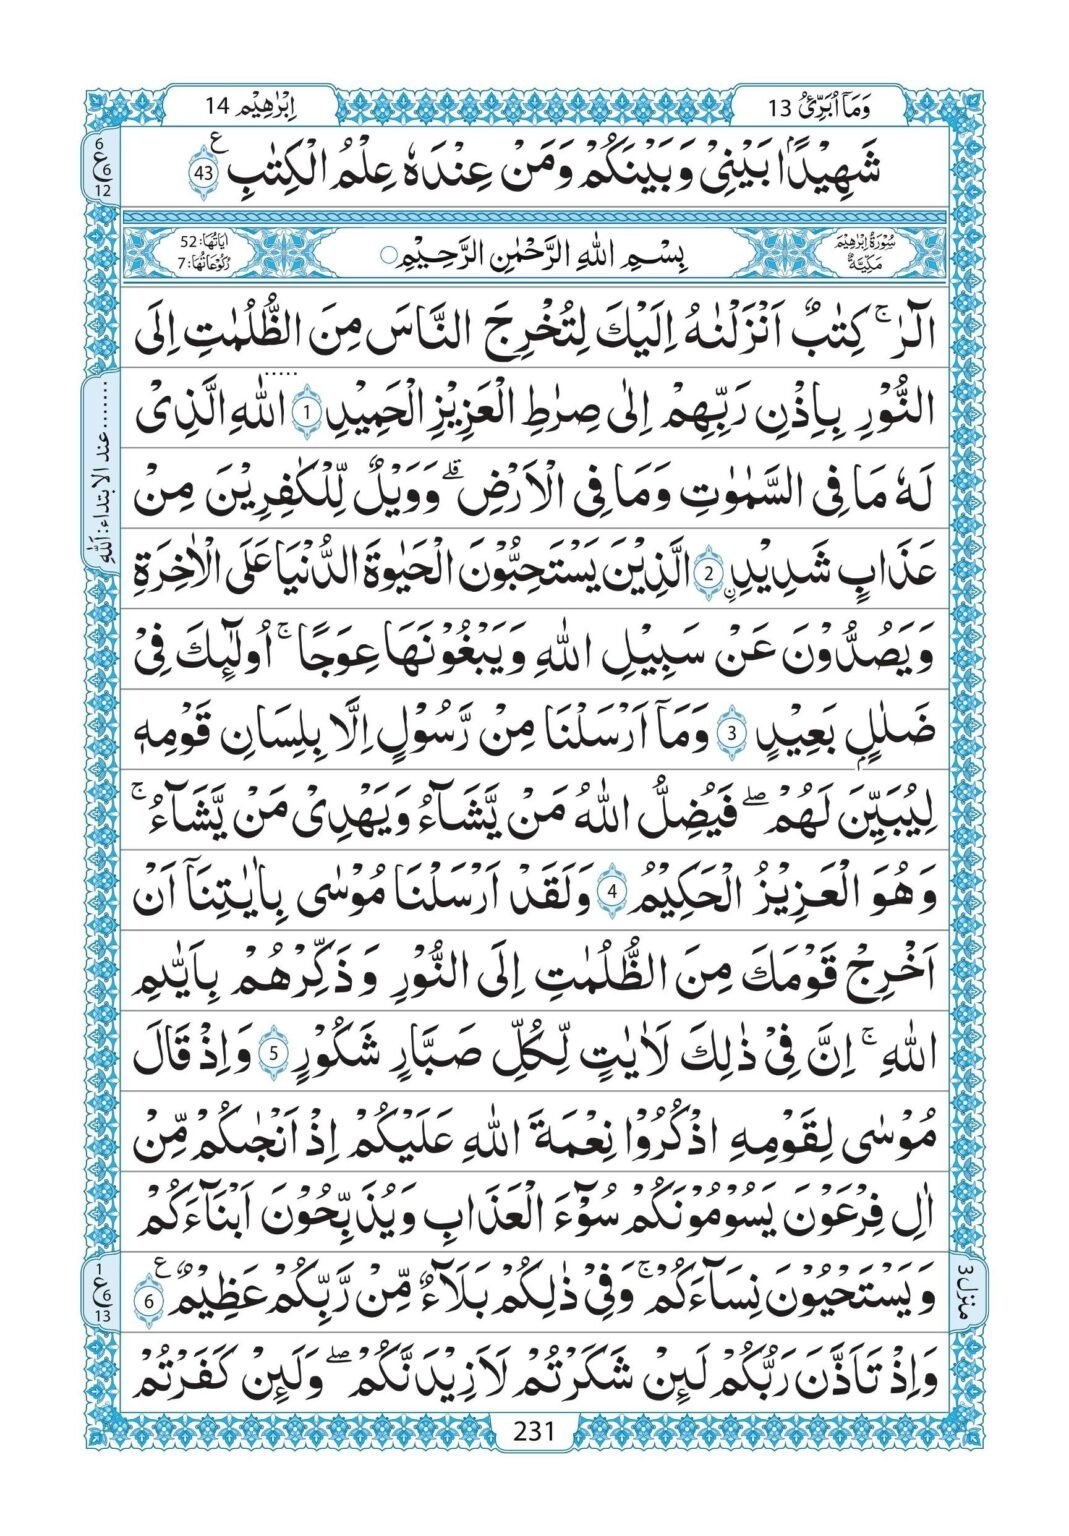 وَمَاۤ اُبَرِّئُ 13
اِبْرٰهِيْم 14
شَهِيْدًۢا بَيْنِيْ وَبَيْنَكُمْ وَمَنْ عِنْدَهٗ عِلْمُ الْكِتٰبِ ع 43
6 ع 6 12
سُوْرَةُ اِبْرٰهِيْمَ مَكِّيَّةٌ
بِسْمِ اللّٰهِ الرَّحْمٰنِ الرَّحِيْمِ
اٰيَاتُهَا: 52
رُكُوْعَاتُهَا: 7
الٓرٰ ۚ كِتٰبٌ اَنْزَلْنٰهُ اِلَيْكَ لِتُخْرِجَ النَّاسَ مِنَ الظُّلُمٰتِ اِلَى
النُّوْرِ بِاِذْنِ رَبِّهِمْ اِلٰى صِرٰطِ الْعَزِيْزِ الْحَمِيْدِ 1 اللّٰهِ الَّذِيْ
لَهٗ مَا فِي السَّمٰوٰتِ وَمَا فِي الْاَرْضِ ۗ وَوَيْلٌ لِّلْكٰفِرِيْنَ مِنْ
عَذَابٍ شَدِيْدِ ِۨ 2 الَّذِيْنَ يَسْتَحِبُّوْنَ الْحَيٰوةَ الدُّنْيَا عَلَى الْاٰخِرَةِ
وَيَصُدُّوْنَ عَنْ سَبِيْلِ اللّٰهِ وَيَبْغُوْنَهَا عِوَجًا ۚ اُولٰٓئِكَ فِيْ
ضَلٰلٍۭ بَعِيْدٍ 3 وَمَاۤ اَرْسَلْنَا مِنْ رَّسُوْلٍ اِلَّا بِلِسَانِ قَوْمِهٖ
لِيُبَيِّنَ لَهُمْ ۖ فَيُضِلُّ اللّٰهُ مَنْ يَّشَآءُ وَيَهْدِيْ مَنْ يَّشَآءُ ۚ
وَهُوَ الْعَزِيْزُ الْحَكِيْمُ 4 وَلَقَدْ اَرْسَلْنَا مُوْسٰى بِاٰيٰتِنَاۤ اَنْ
اَخْرِجْ قَوْمَكَ مِنَ الظُّلُمٰتِ اِلَى النُّوْرِ وَذَكِّرْهُمْ بِاَيّٰىمِ
اللّٰهِ ۚ اِنَّ فِيْ ذٰلِكَ لَاٰيٰتٍ لِّكُلِّ صَبَّارٍ شَكُوْرٍ 5 وَاِذْ قَالَ
مُوْسٰى لِقَوْمِهِ اذْكُرُوْا نِعْمَةَ اللّٰهِ عَلَيْكُمْ اِذْ اَنْجٰىكُمْ مِّنْ
اٰلِ فِرْعَوْنَ يَسُوْمُوْنَكُمْ سُوْٓءَ الْعَذَابِ وَيُذَبِّحُوْنَ اَبْنَآءَكُمْ
وَيَسْتَحْيُوْنَ نِسَآءَكُمْ ۚ وَفِيْ ذٰلِكُمْ بَلَآءٌ مِّنْ رَّبِّكُمْ عَظِيْمٌ ع 6
وَاِذْ تَاَذَّنَ رَبُّكُمْ لَىِٕنْ شَكَرْتُمْ لَاَزِيْدَنَّكُمْ ۖ وَلَىِٕنْ كَفَرْتُمْ
عند الابتداء: اَللّٰهِ
1 ع 6 13
منزل 3
231